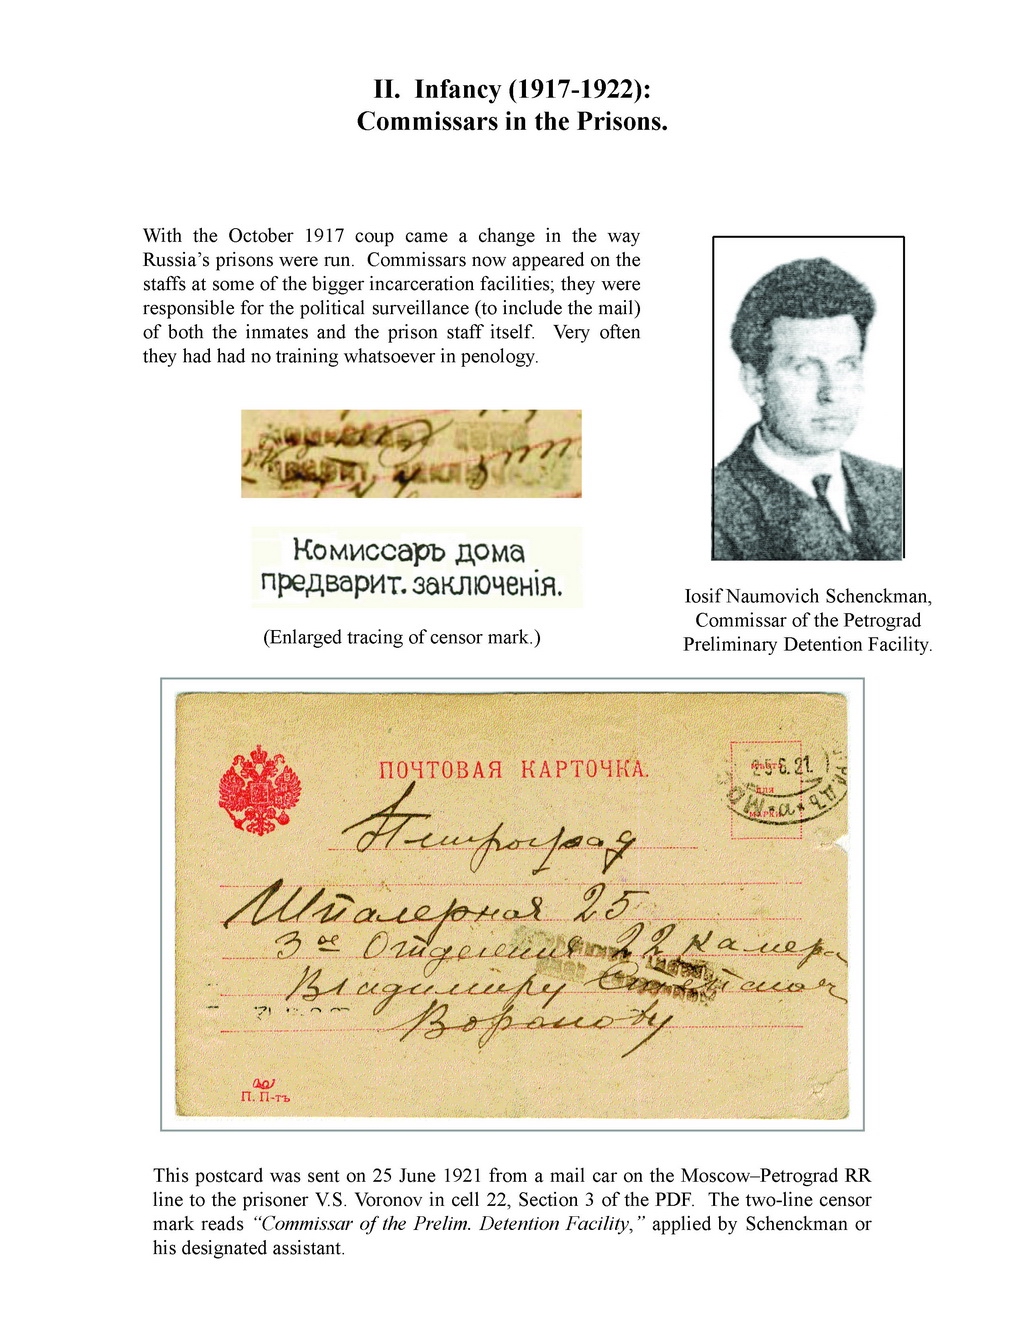 II. Infancy (1917-1922):
Commissars in the Prisons.
With the October 1917 coup came a change in the way
Russia’s prisons were run. Commissars now appeared on the
staffs at some of the bigger incarceration facilities; they were
responsible for the political surveillance (to include the mail)
of both the inmates and the prison staff itself. Very often
they had had no training whatsoever in penology.
Комиссаръ дома
предварит. заключенія.
(Enlarged tracing of censor mark.)
Iosif Naumovich Schenckman,
Commissar of the Petrograd
Preliminary Detention Facility.
ПОЧТОВАЯ КАРТОЧКА.
25 6. 21.
для
марки
Петроград
Шпалерная 25
3 ое Отделение 22 камера
Владимиру
Воронову
П. П-тъ
This postcard was sent on 25 June 1921 from a mail car on the Moscow–Petrograd RR
line to the prisoner V.S. Voronov in cell 22, Section 3 of the PDF. The two-line censor
mark reads “Commissar of the Prelim. Detention Facility,” applied by Schenckman or
his designated assistant.